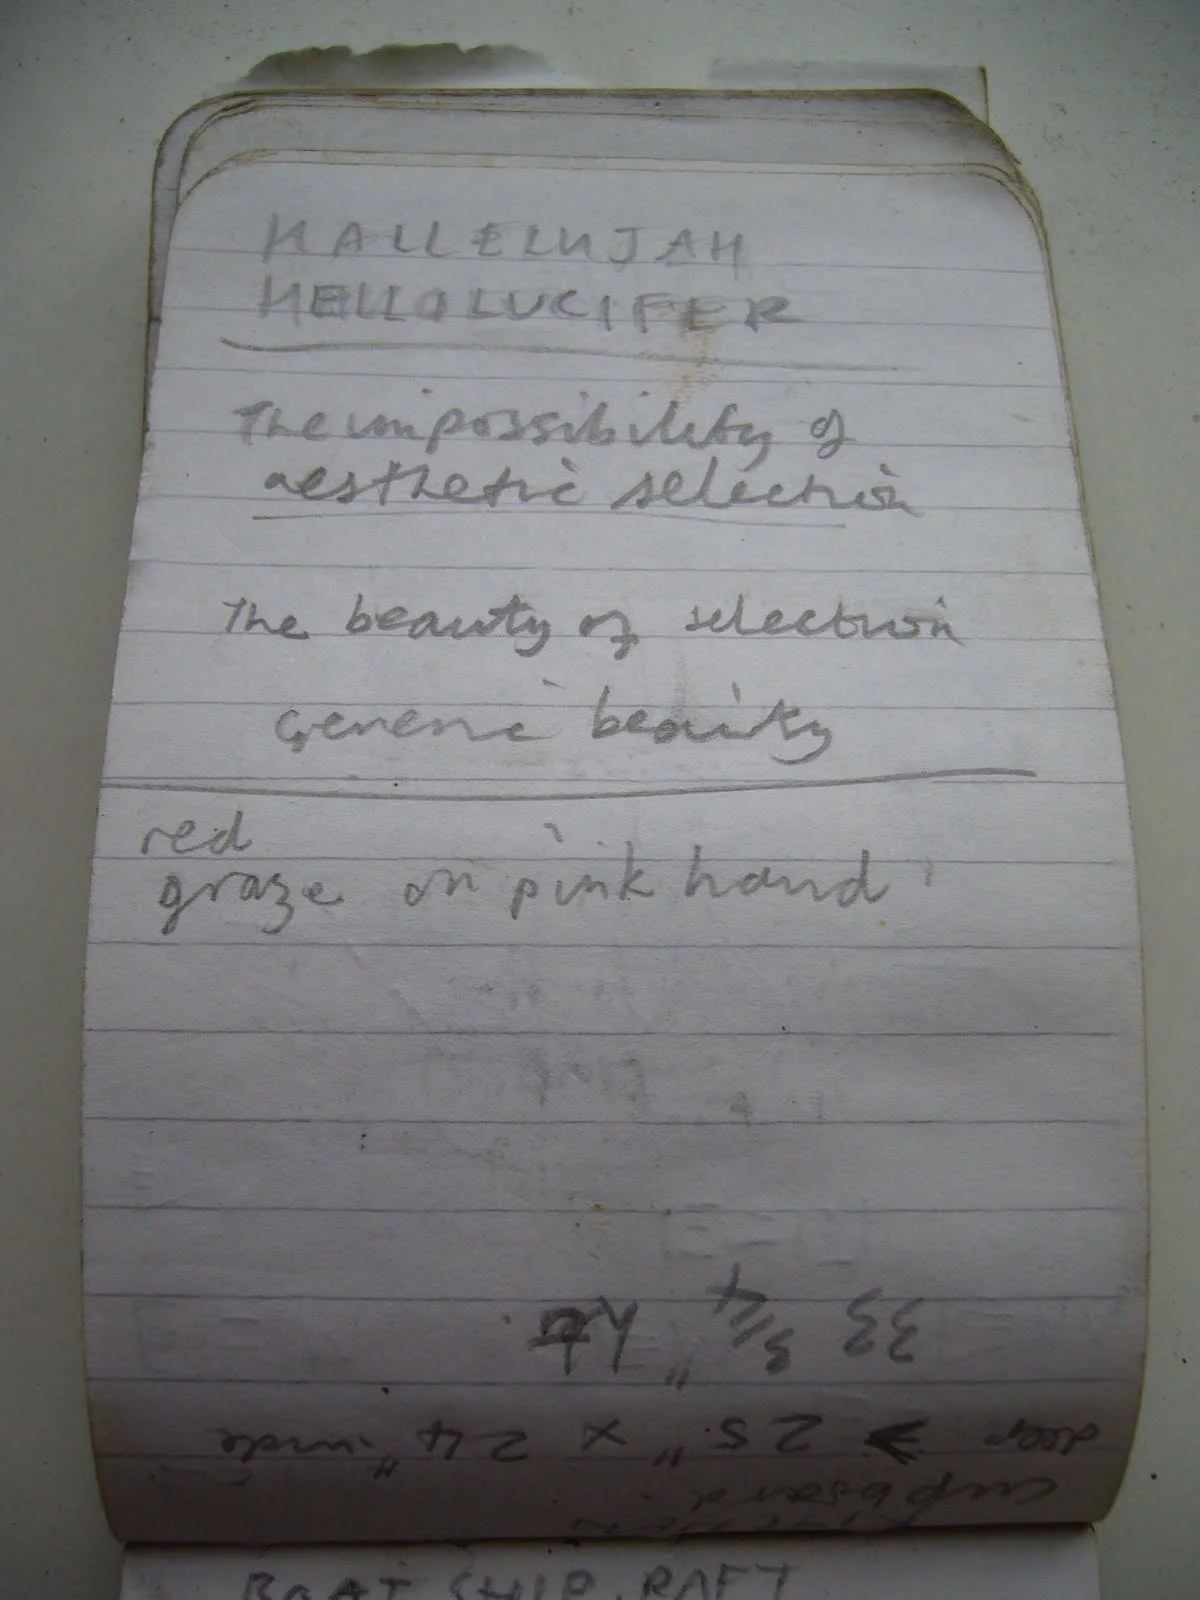 HALLELUJAH
HELLOLUCIFER
The impossibility of
aesthetic selection
The beauty of selection
Generic beauty
red
graze on pink hand
cupboard.
deep → 25" x 24" inside
33 3/4" ht.
BOAT SHIP RAFT